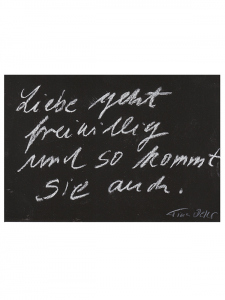 Liebe geht
freiwillig
und so kommt
sie auch.